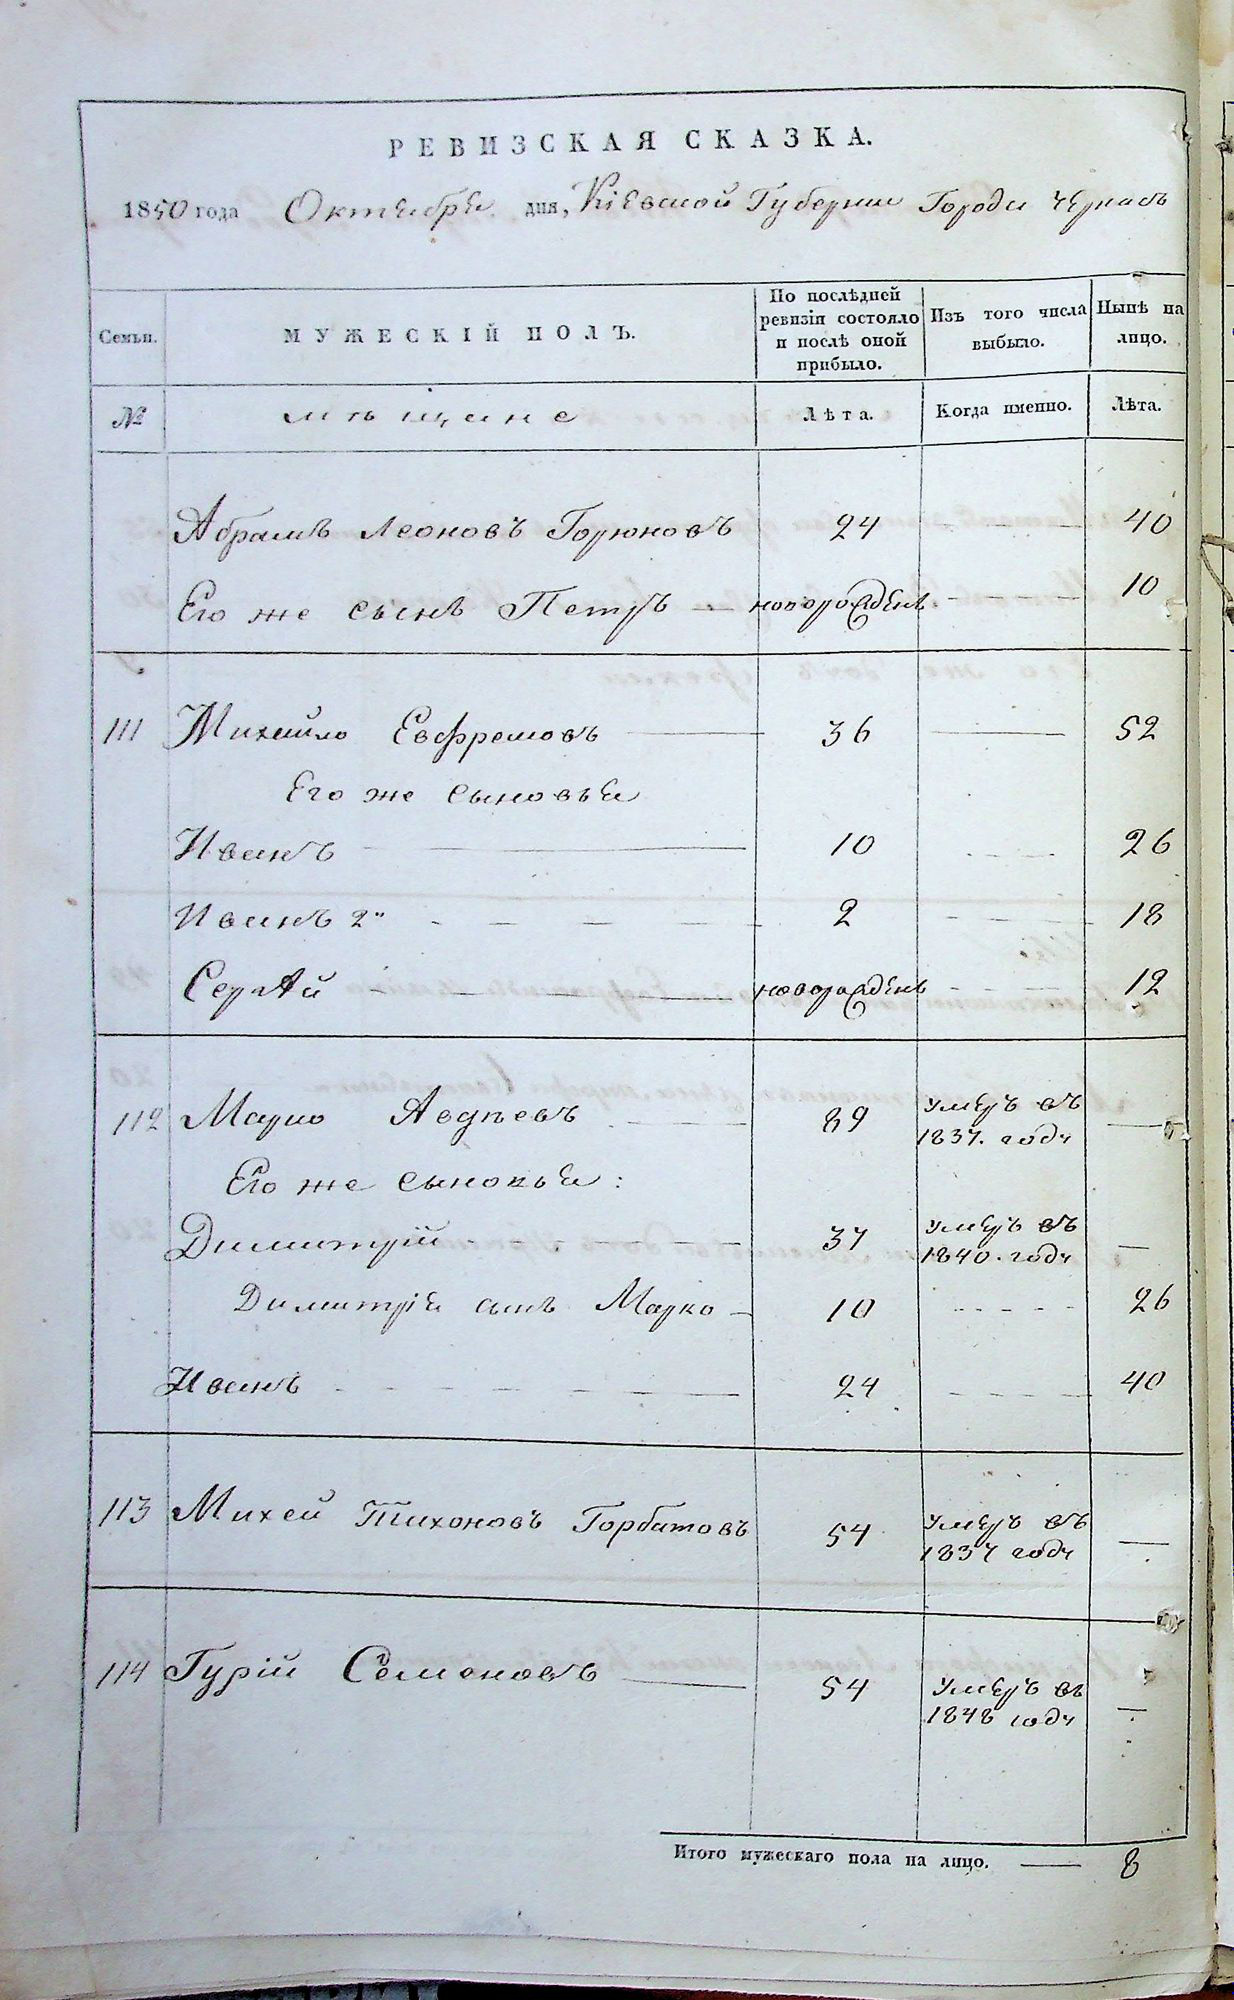 РЕВИЗСКАЯ СКАЗКА.
1850 года Октября дня, Кіевской Губерніи Города Черкасъ
Семьи. МУЖЕСКІЙ ПОЛЪ. По послѣдней ревизіи состояло и послѣ оной прибыло. Изъ того числа выбыло. Нынѣ на лицо.
№ мѣщане Лѣта. Когда именно. Лѣта.
Абрамъ Леоновъ Горюновъ 24 40
Его же сынъ Петръ новорожденъ 10
111 Михайло Евфремовъ 36 52
Его же сыновья
Иванъ 10 26
Иванъ 2й 2 18
Сергѣй новорожденъ 12
112 Марко Авдѣевъ 89 умеръ въ 1837. году —
Его же сыновья:
Димитрій 37 умеръ въ 1840. году —
Димитрія сынъ Марко 10 26
Иванъ 24 40
113 Михей Тихоновъ Горбатовъ 54 умеръ въ 1837 году —
114 Гурій Семеновъ 54 умеръ въ 1848 году —
Итого мужескаго пола на лицо. — 8